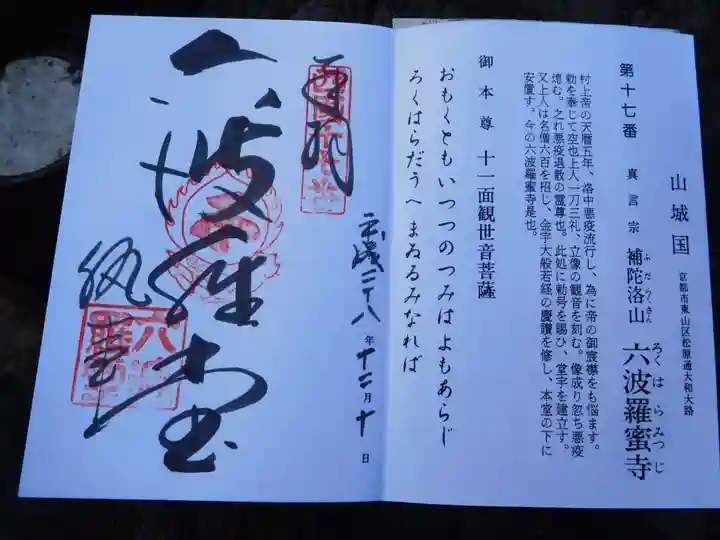 山城国 京都市東山区松原通大和大路
第十七番 真言宗 補陀洛山 六波羅蜜寺
ふだらくさん ろくはらみつじ
村上帝の天暦五年、洛中悪疫流行し、為に帝の御宸襟をも悩ます。
勅を奉じて空也上人一刀三礼、立像の観音を刻む。像成り忽ち悪疫
熄む。之れ悪疫退散の霊尊也。此処に勅号を賜ひ、堂宇を建立す。
又上人は名僧六百を招し、金字大般若経の慶讃を修し、本堂の下に
安置す。今の六波羅蜜寺是也。
御本尊 十一面観世音菩薩
おもくともいつつのつみはよもあらじ
ろくはらだうへまゐるみなれば
奉拝
平成二十八年十二月十日
六波羅堂
執事